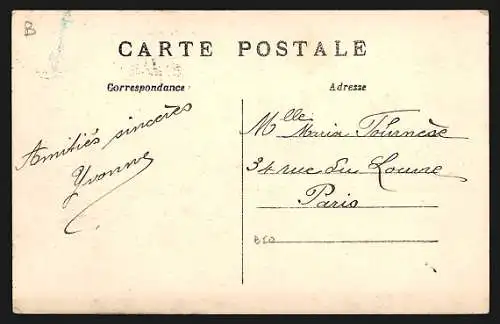 B
CARTE POSTALE
Correspondance
Adresse
Amitiés sincères
Yvonne
Mlle Maria Tournese
34 rue du Louvre
Paris